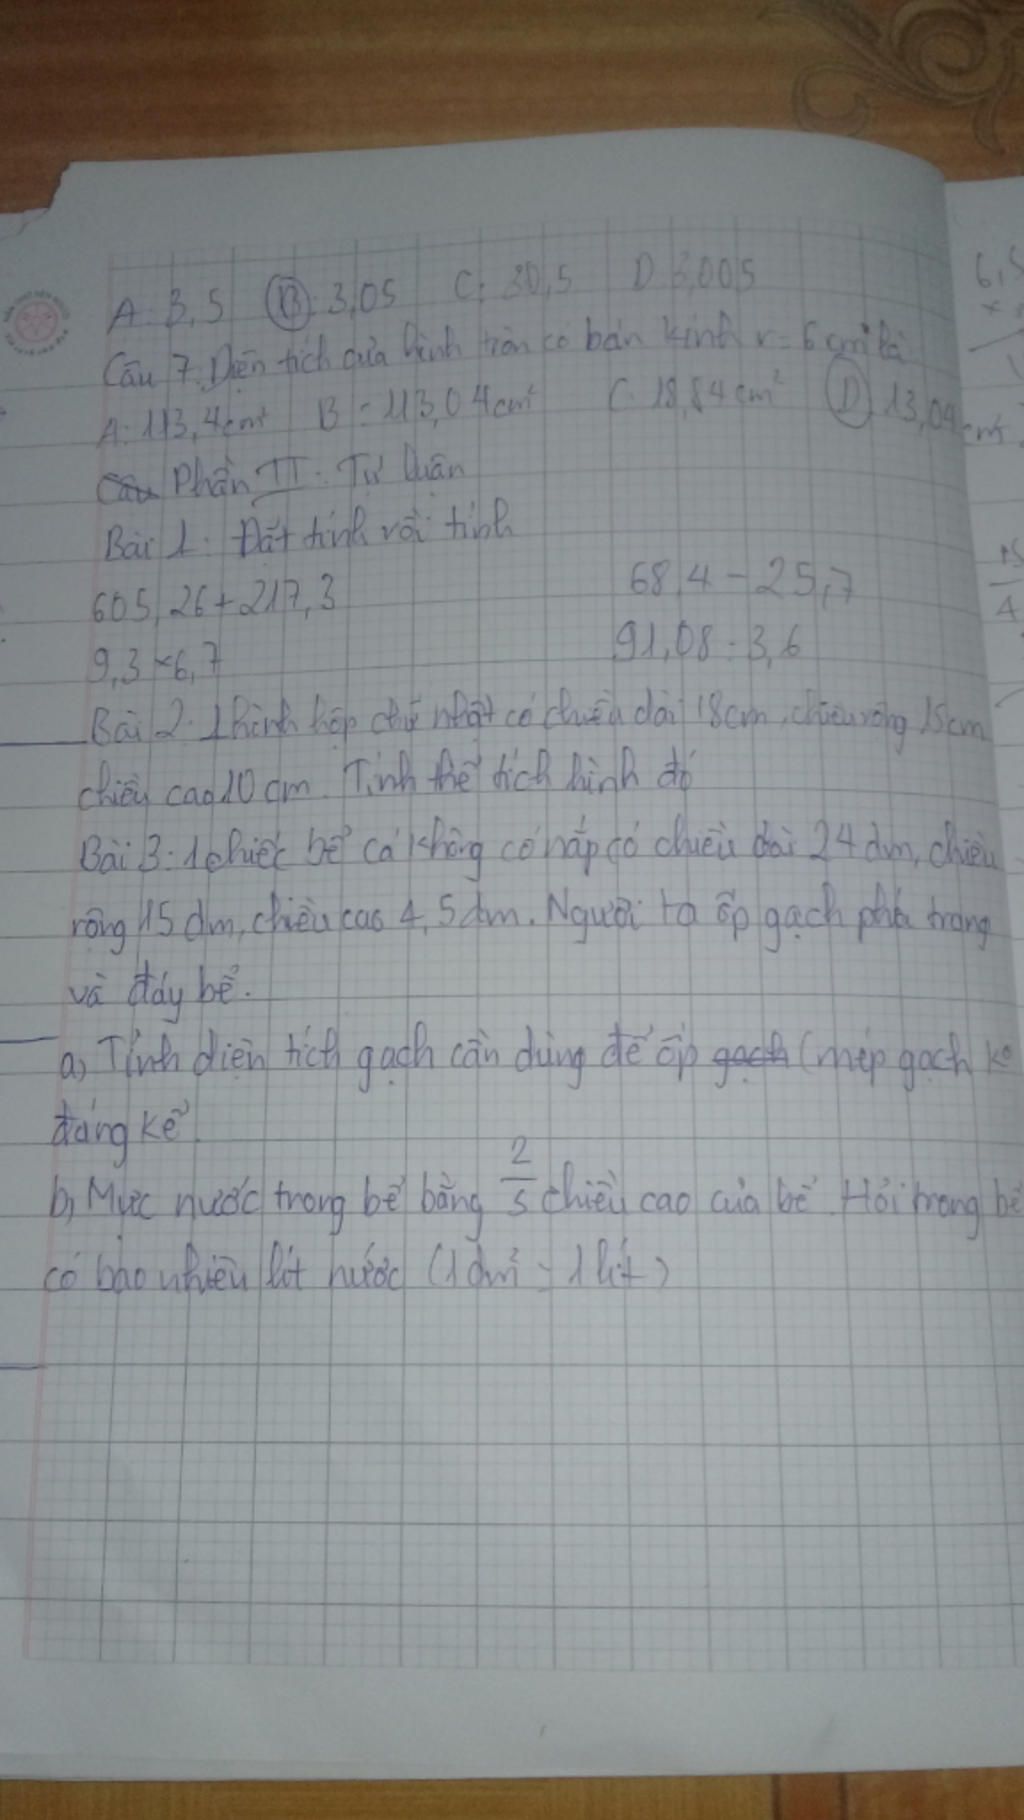 A: 3,5 B: 3,05 C: 30,5 D 3,005
Câu 7. Diện tích của hình tròn có bán kính r = 6 cm là
A: 113,4cm² B = 113,04cm² C. 18,84cm² D 13,04cm²
Câu Phần II: Tự luận
Bài 1: Đặt tính rồi tính
605,26 + 217,3 68,4 - 25,7
9,3 × 6,7 91,08 : 3,6
Bài 2: 1 hình hộp chữ nhật có chiều dài 18cm, chiều rộng 15cm
chiều cao 10 cm. Tính thể tích hình đó
Bài 3: 1 chiếc bể cá không có nắp có chiều dài 24 dm, chiều
rộng 15 dm, chiều cao 4,5 dm. Người ta ốp gạch phía trong
và đáy bể.
a) Tính diện tích gạch cần dùng để ốp gạch (mép gạch ko
đáng kể
b) Mực nước trong bể bằng 2/5 chiều cao của bể. Hỏi trong bể
có bao nhiêu lít nước (1 dm³ = 1 lít)
6,5
×
15
4